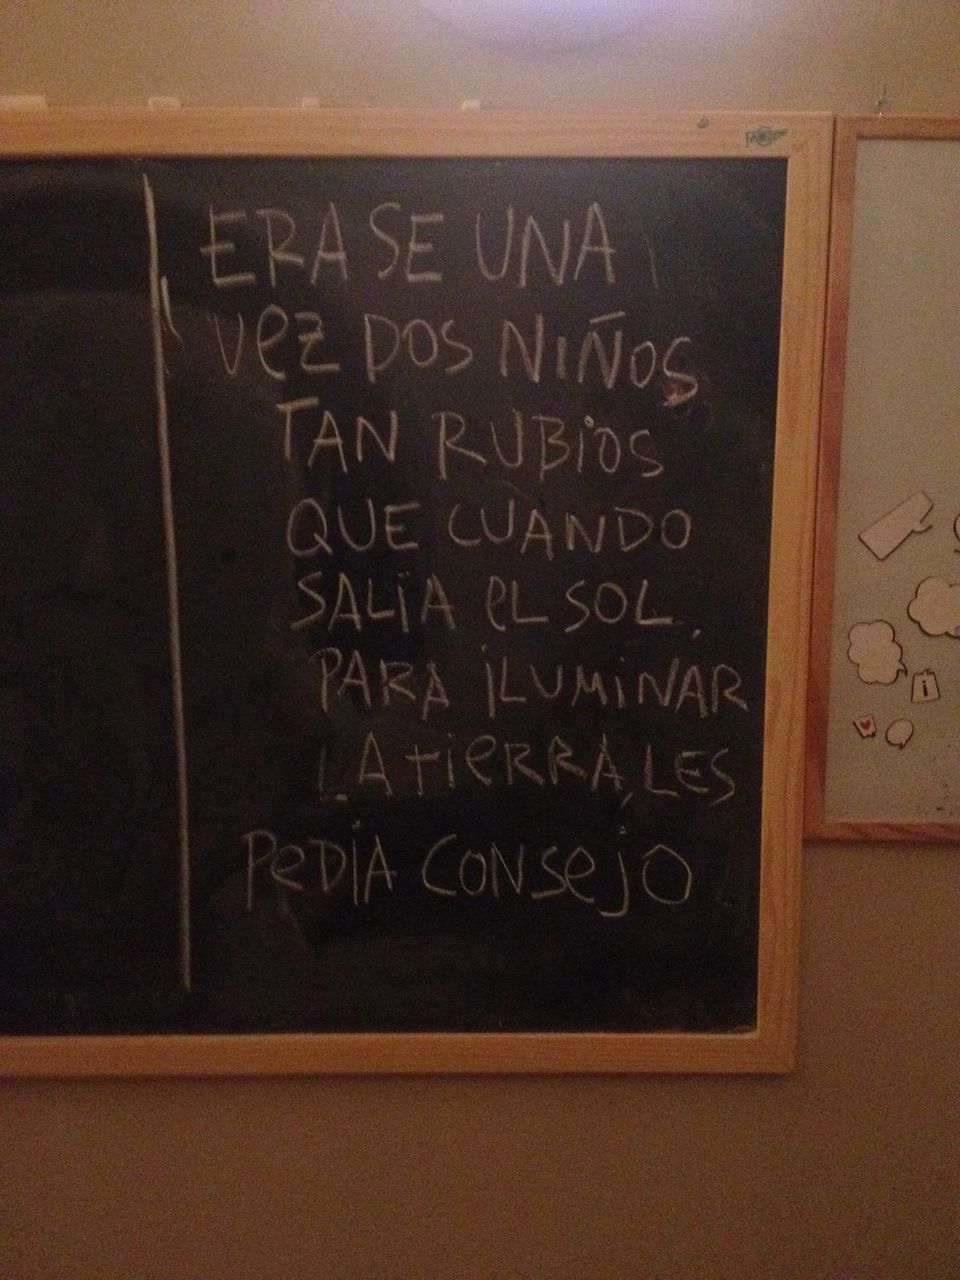 ERASE UNA
VEZ DOS NIÑOS
TAN RUBIOS
QUE CUANDO
SALIA EL SOL
PARA ILUMINAR
LA TIERRA, LES
PEDIA CONSEJO
i